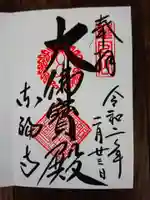 奉拝
令和二年
二月廿三日
大佛寶殿